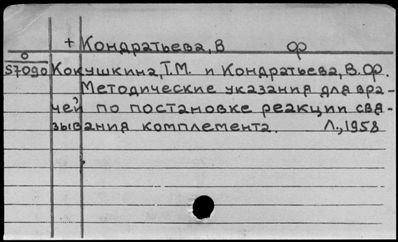 + Кондратьева, В ф
о
57090 Кокушкина, Т.М. и Кондратьева, В.Ф.
Методические указания для вра-
чей по постановке реакции свя-
зывания комплемента. Л., 1958